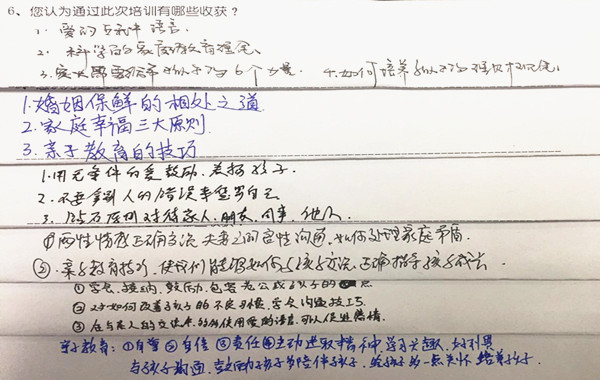 6、您认为通过此次培训有哪些收获？
1. 爱的五种语言.
2. 科学的家庭教育理念.
3. 家长需要给孩子的6个力量. 4. 如何培养孩子的
1. 婚姻保鲜的相处之道
2. 家庭幸福三大原则
3. 亲子教育的技巧
1. 用无条件的爱鼓励、支持孩子.
2. 不要拿别人的错误来惩罚自己
3. 原则对待家人、朋友、同事、他人
①两性情感正确方法, 夫妻之间定性沟通, 如何处理家庭矛盾.
② 亲子教育技巧, 使我们能够如何与孩子交流, 正确指导孩子成长.
①学会接纳、鼓励、包容爱人孩子的
② 对如何改善孩子的不良习惯, 学会沟通技巧.
③ 在与家人的交流中的使用爱的语言, 可以促进感情.
亲子教育：①自尊 ②自信 ③责任 ④主动进取精神. 学习兴趣. 好
与孩子沟通, 鼓励孩子多陪伴孩子. 给孩子多一点关怀